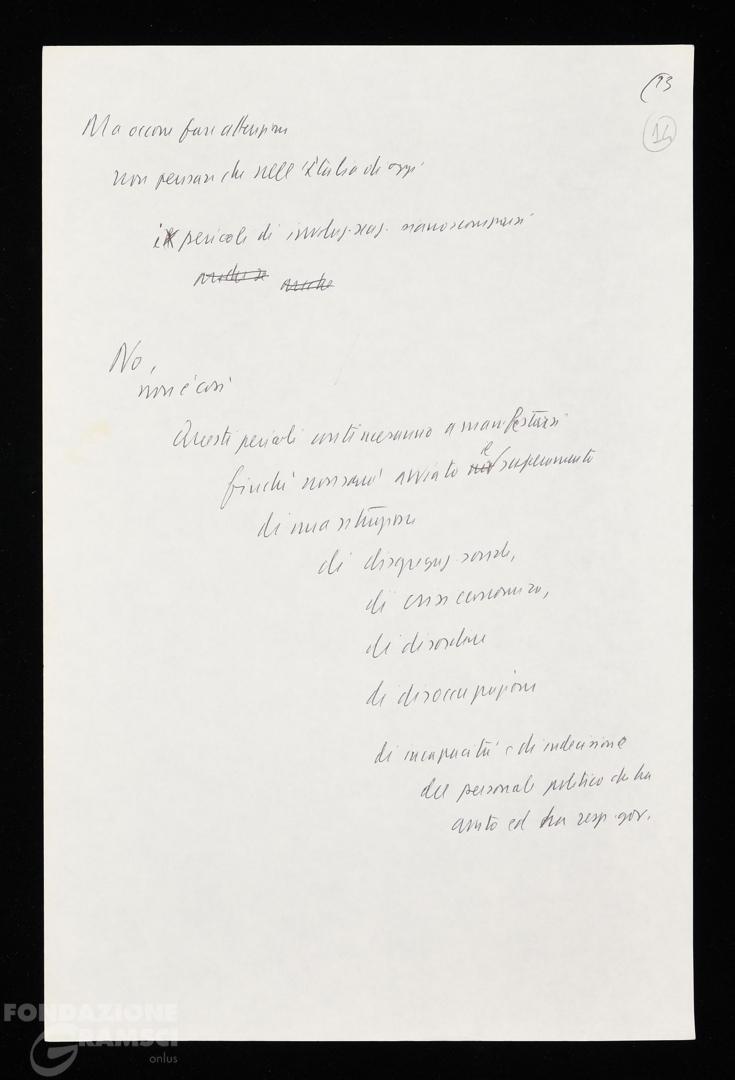 13
14
Ma occorre fare attenzione
non pensare che nell'Italia di oggi
i pericoli di involuz. reaz. siano scomparsi
anche
No,
non è così
Questi pericoli continueranno a manifestarsi
finché non sarà avviato il superamento
di una situazione
di disgregaz. sociale,
di crisi economica,
di disordine
di disoccupazione
di incapacità e di indecisione
del personale politico che ha
avuto ed ha resp. gov.
FONDAZIONE
GRAMSCI
onlus